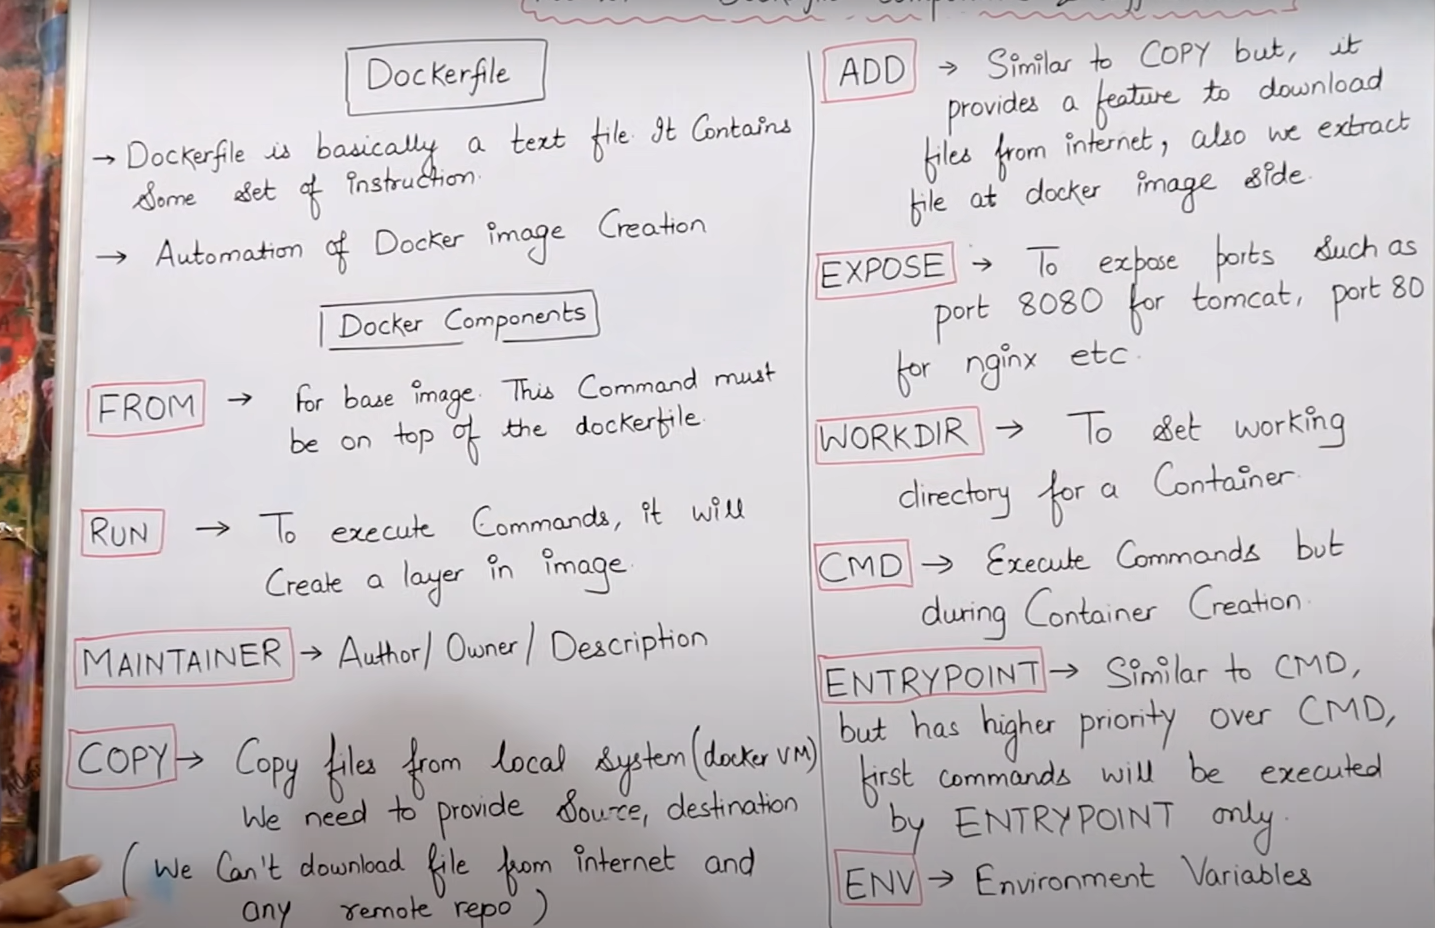 Dockerfile
→ Dockerfile is basically a text file. It Contains
Some set of instruction.
→ Automation of Docker image Creation
Docker Components
FROM → for base image. This Command must
be on top of the dockerfile.
RUN → To execute Commands, it will
Create a layer in image.
MAINTAINER → Author/ Owner/ Description
COPY → Copy files from local system (docker VM)
We need to provide Source, destination
(We Can't download file from internet and
any remote repo)
ADD → Similar to COPY but, it
provides a feature to download
files from internet, also we extract
file at docker image side.
EXPOSE → To expose ports such as
port 8080 for tomcat, port 80
for nginx etc.
WORKDIR → To set working
directory for a Container.
CMD → Execute Commands but
during Container Creation.
ENTRYPOINT → Similar to CMD,
but has higher priority over CMD,
first commands will be executed
by ENTRYPOINT only.
ENV → Environment Variables